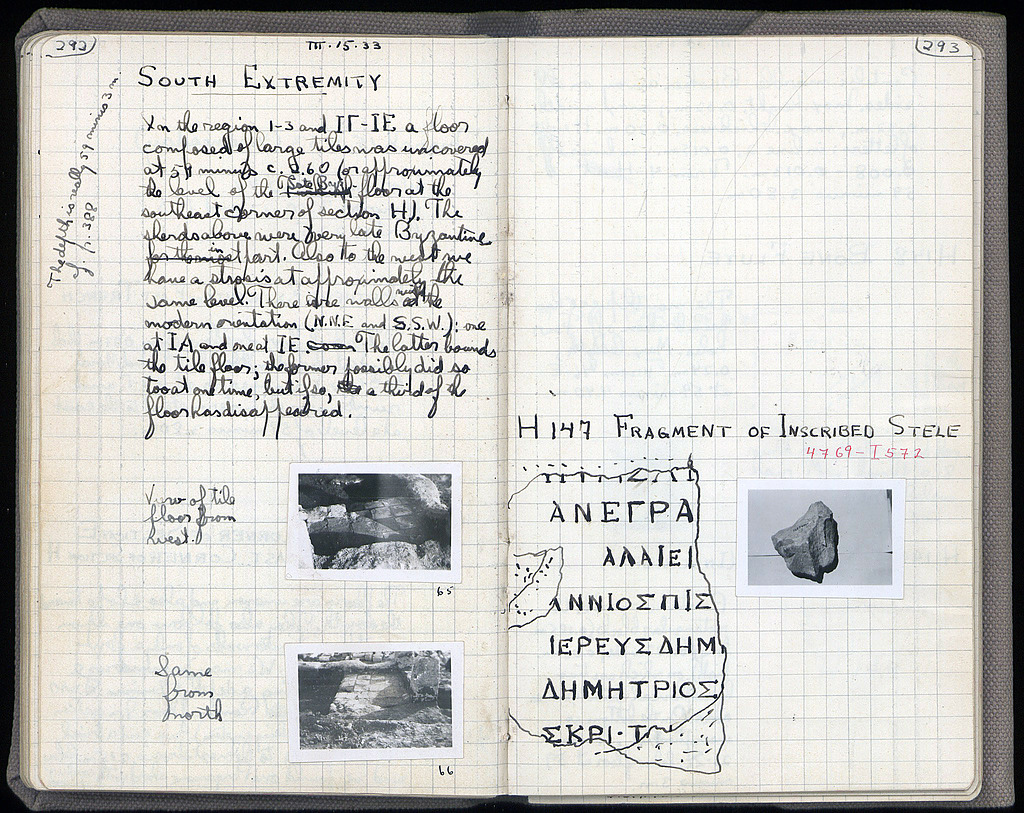 292
III.15.33
SOUTH EXTREMITY
In the region 1-3 and ΙΓ-ΙΕ a floor
composed of large tiles was uncovered
at 59 minus c. 2.60 (or approximately
the level of the Late Byz. floor at the
southeast corner of section H). The
sherds above were very late Byzantine
in part. Also to the west we
have a strosis at approximately the
same level. There are walls with the
modern orientation (N.N.E and S.S.W.): one
at ΙΑ and one at ΙΕ. The latter bounds
the tile floor; the former possibly did so
too at one time, but if so, a third of the
floor has disappeared.
The depth is really 59 minus 3 m
cf. p. 388
View of tile
floor from
west.
65
Same
from
north
66
293
H 147 FRAGMENT OF INSCRIBED STELE
4769-I 572
ΑΝΕΓΡΑ
ΑΛΑΙΕΙ
ΑΝΝΙΟΣΠΙΣ
ΙΕΡΕΥΣΔΗΜ
ΔΗΜΗΤΡΙΟΣ
ΣΚΡΙ·Τ